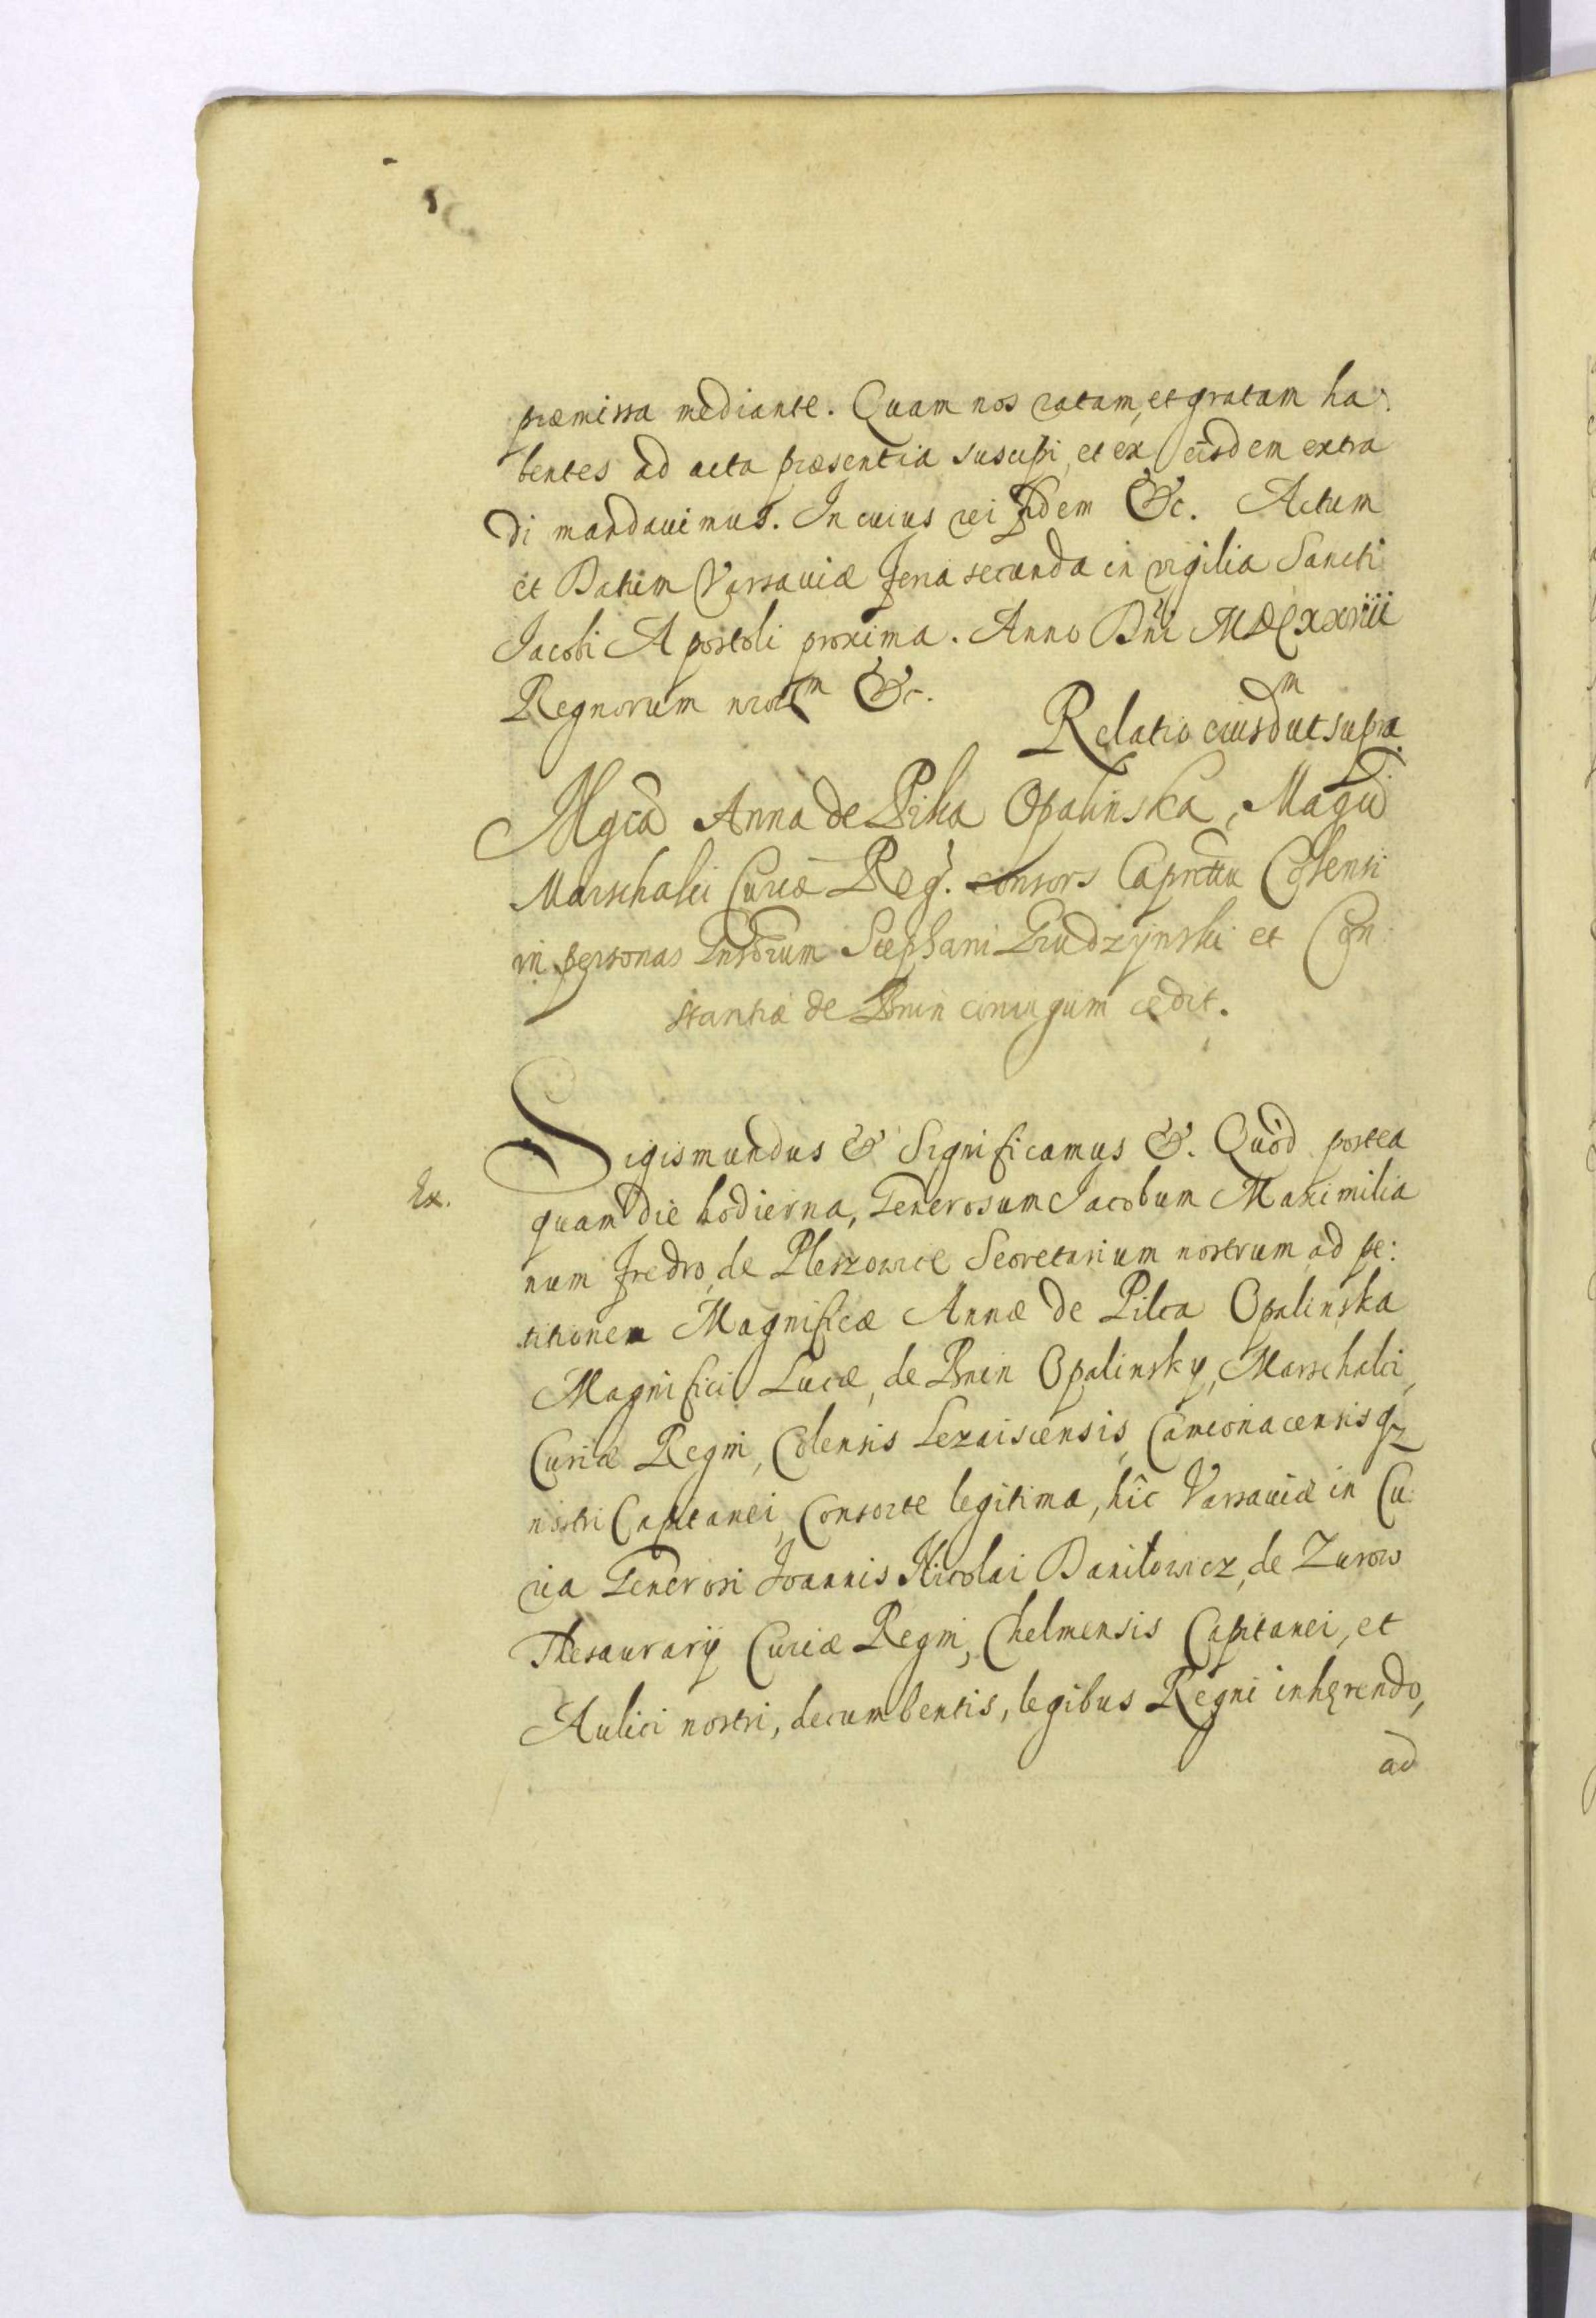 præmissa mediante. Quam nos ratam, et gratam ha:
bentes ad acta præsentia suscipi, et ex eisdem extra
di mandauimus. In cuius rei fidem &c. Actum
et Datum Varsauiæ feria secunda in vigilia Sancti
Jacobi Apostoli proxima. Anno Dni MDCXXVIII
Regnorum nror̃m &c.
Relatio eiusdm ut supra.
Mgcã Anna de Pilca Opalinska, Magci
Marschalci Curiæ Reg. consors Capnttu Colensi
in personas Gnsorum Stephani Grudzynski et Con:
stantiæ de Bnin coniugum cedit.
Sigismundus & Significamus &. Quòd postea
Ex.
quam die hodierna, Generosum Jacobum Maximilia
num Fredro, de Pleszowice Secretarium nostrum ad pe:
titionem Magnificæ Annæ de Pilca Opalinska
Magnifici Lucæ, de Bnin Opalinsky, Marschalci,
Curiæ Regni, Colensis Lezaiscensis, Camionacensisqz
nostri Capitanei, Consorte legitima, hîc Varsauiæ in Cu:
ria Generosi Joannis Nicolai Daniłowicz, de Zurow
Thesaurarij Curiæ Regni, Chelmensis Capitanei, et
Aulici nostri, decumbentis, legibus Regni inhęrendo,
ad